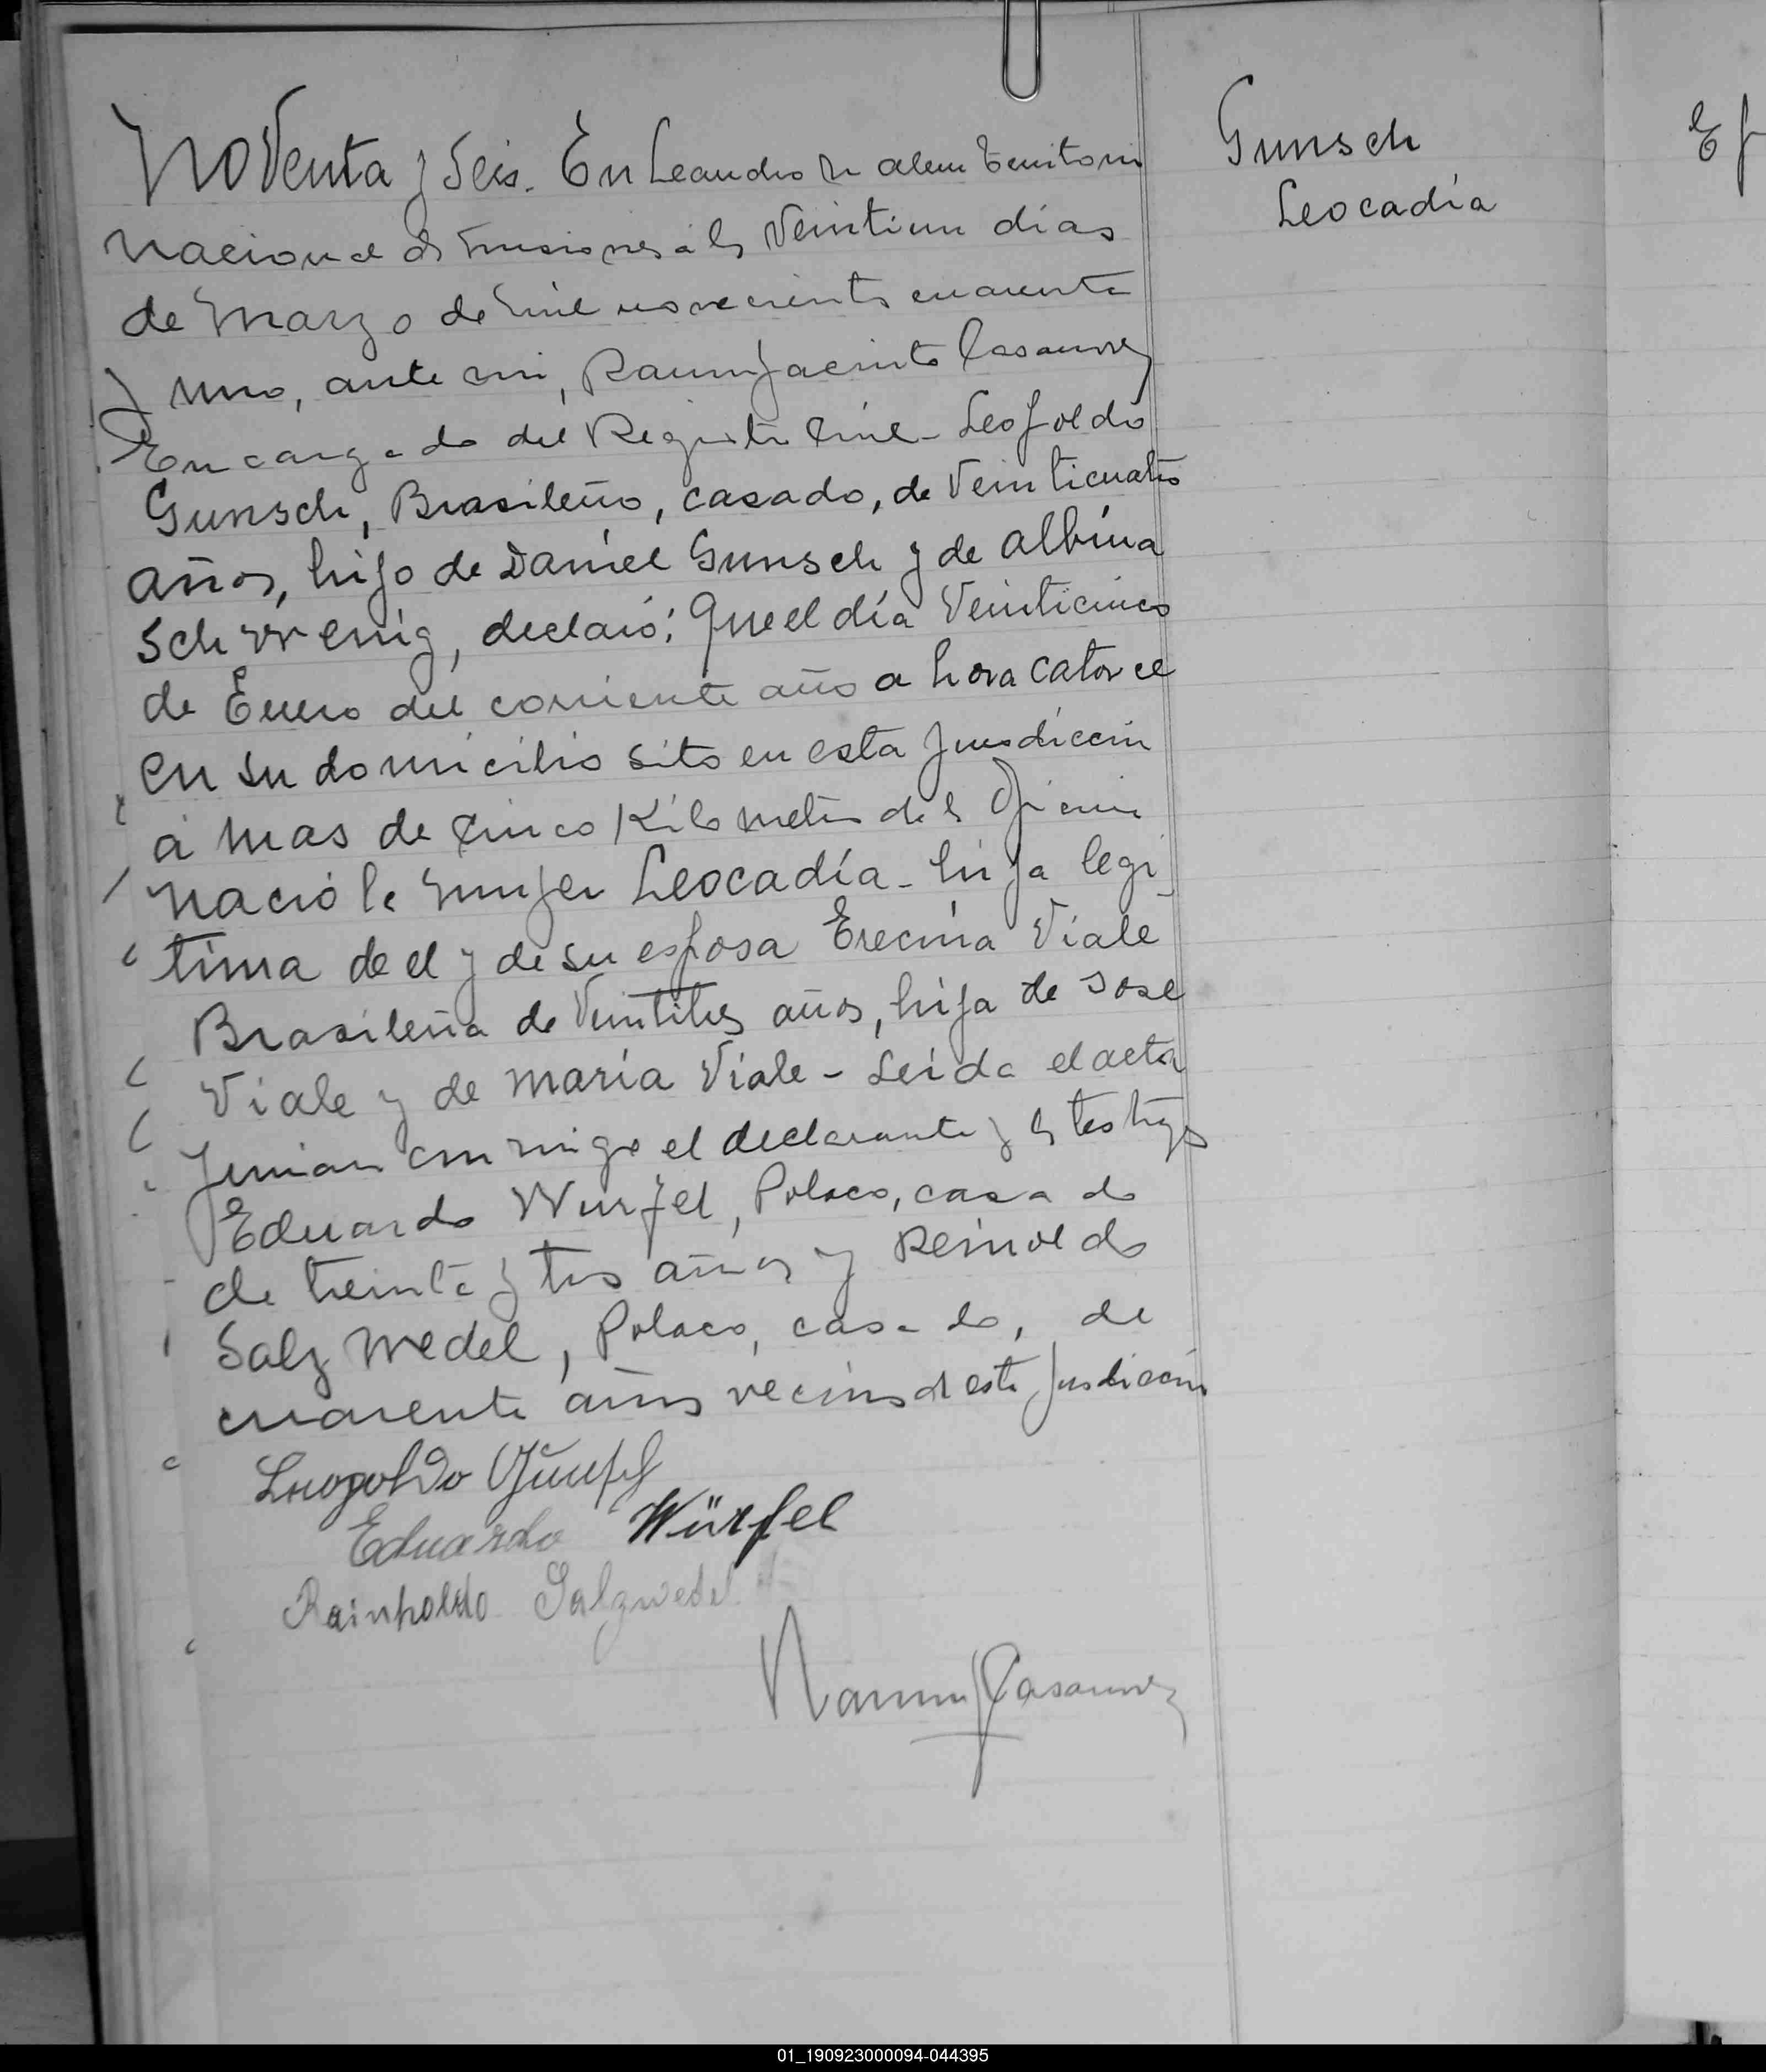 Noventa y Seis. En Leandro N alem Territorio
Nacional de Misiones a los Veintiun dias
de Marzo de Mil novecientos cuarenta
y uno, ante mi, Ramon Jacinto Casanovez
Encargado del Registro Civil - Leopoldo
Gunsch, Brasileño, casado, de Veinticuatro
años, hijo de Daniel Gunsch y de albina
Schwenig, declaró: Que el día Veinticinco
de Enero del corriente año a hora catorce
en su domicilio sito en esta Jurisdiccion
a mas de Cinco Kilometros de la Oficina
nació la Mujer Leocadía - hija legi
tima de el y de su esposa Erecina Viale
Brasileña de Veintitres años, hija de José
Viale y de María Viale - Leida el acta
firman conmigo el declarante y los testigos
Eduardo Wurfel, Polaco, casado
de treinta y tres años y Reinoldo
Salzwedel, Polaco, casado, de
cuarenta años vecinos de esta Jurisdiccion
Leopoldo Günsch
Eduardo Würfel
Rainholdo Salzwedel
Ramon J Casanovez
Gunsch
Leocadía
01_190923000094-044395